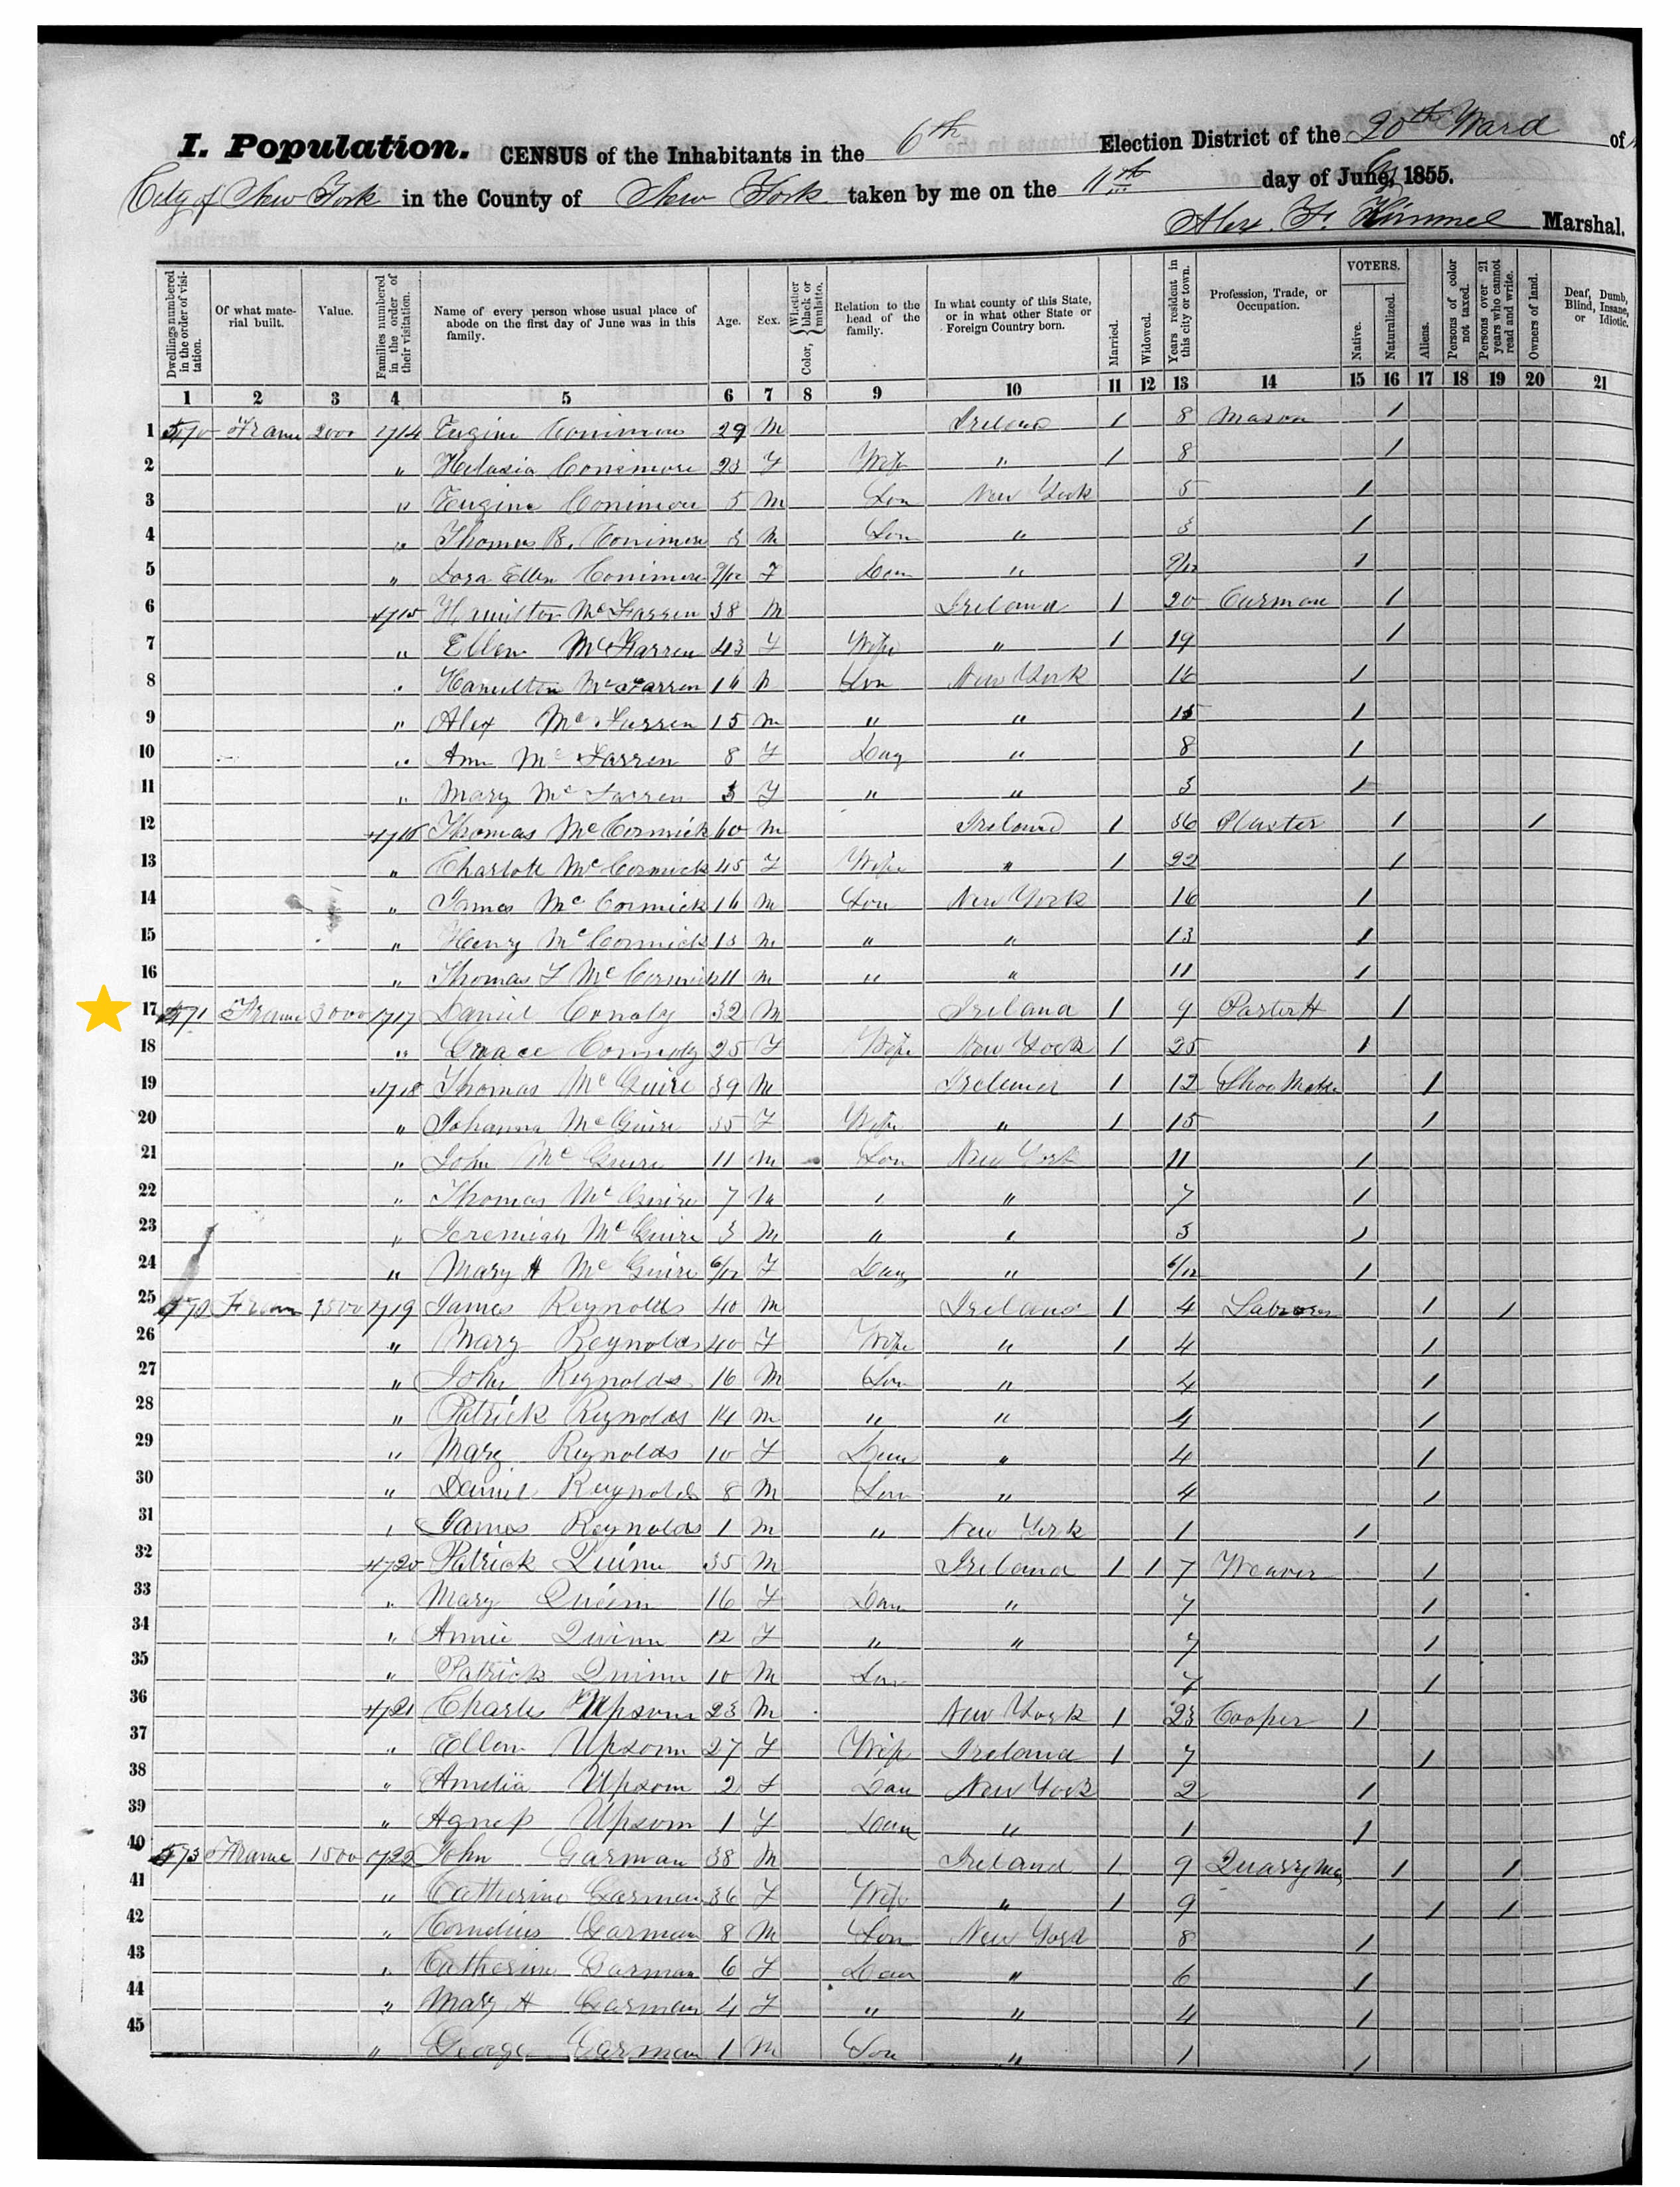 I. Population. CENSUS of the Inhabitants in the 6th Election District of the 20th Ward of
City of New York in the County of New York taken by me on the 11th day of June, 1855.
Alex. F. Kimmel Marshal.
Dwellings numbered in the order of visitation. Of what material built. Value. Families numbered in the order of their visitation. Name of every person whose usual place of abode on the first day of June was in this family. Age. Sex. Color, Whether black or mulatto. Relation to the head of the family. In what county of this State, or in what other State or Foreign Country born. Married. Widowed. Years resident in this city or town. Profession, Trade, or Occupation. VOTERS. Native. Naturalized. Aliens. Persons of color not taxed. Persons over 21 years who cannot read and write. Owners of land. Deaf, Dumb, Blind, Insane, or Idiotic.
1 2 3 4 5 6 7 8 9 10 11 12 13 14 15 16 17 18 19 20 21
1 Frame 2000 1714 Eugine Conimore 29 M Ireland 1 8 Mason 1
2 " Conimore 23 F Wife " 1 8 1
3 " Eugine Conimore 5 M Son New York 5 1
4 " Thomas B. Conimore 3 M Son " 3 1
5 " Dora Ellen Conimore 9/12 F Dau " 9/12 1
6 1715 Hamilton McFarren 38 M Ireland 1 20 Carman 1
7 " Ellen McFarren 43 F Wife " 1 19 1
8 " Hamilton McFarren 16 M Son New York 16 1
9 " Alex McFarren 15 M " " 15 1
10 " Ann McFarren 8 F Dag " 8 1
11 " Mary McFarren 3 F " " 3 1
12 1716 Thomas McCormick 60 M Ireland 1 36 Plaster 1 1
13 " Charlott McCormick 45 F Wife " 1 22 1
14 " James McCormick 16 M Son New York 16 1
15 " Henry McCormick 13 M " " 13 1
16 " Thomas F McCormick 11 M " " 11 1
17 571 Frame 3000 1717 Daniel Conoly 32 M Ireland 1 9 1
18 " Grace 25 F Wife New York 1 25 1
19 1718 Thomas McGuire 39 M Ireland 1 12 Shoe Maker 1
20 " Johanna McGuire 35 F Wife " 1 15 1
21 " John McGuire 11 M Son New York 11 1
22 " Thomas McGuire 7 M " " 7 1
23 " Jeremiah McGuire 3 M " " 3 1
24 " Mary A McGuire 6/12 F Dag " 6/12 1
25 572 Fram 1719 James Reynolds 40 M Ireland 1 4 Laborer 1 1
26 " Mary Reynolds 40 F Wife " 1 4 1
27 " John Reynolds 16 M Son " 4 1
28 " Patrick Reynolds 14 M " " 4 1
29 " Mary Reynolds 10 F Dau " 4 1
30 " Daniel Reynolds 8 M Son " 4 1
31 " James Reynolds 1 M " New York 1 1
32 1720 Patrick Quinn 35 M Ireland 1 1 7 Weaver 1
33 " Mary Quinn 16 F Dau " 7 1
34 " Annie Quinn 12 F " " 7 1
35 " Patrick Quinn 10 M Son 7 1
36 1721 Charls Upsom 23 M New York 1 23 Cooper 1
37 " Ellen Upsom 27 F Wife Ireland 1 7 1
38 " Amelia Upsom 2 F Dau New York 2 1
39 " Agness Upsom 1 F Dau " 1 1
40 573 Frame 1500 1722 John Garman 38 M Ireland 1 9 Quarryman 1 1
41 " Catherine Garman 36 F Wife " 1 9 1 1
42 " Cornelius Garman 8 M Son New York 8 1
43 " Catherine Garman 6 F Dau " 6 1
44 " Mary A Garman 4 F " " 4 1
45 " George Garman 1 M Son " 1 1